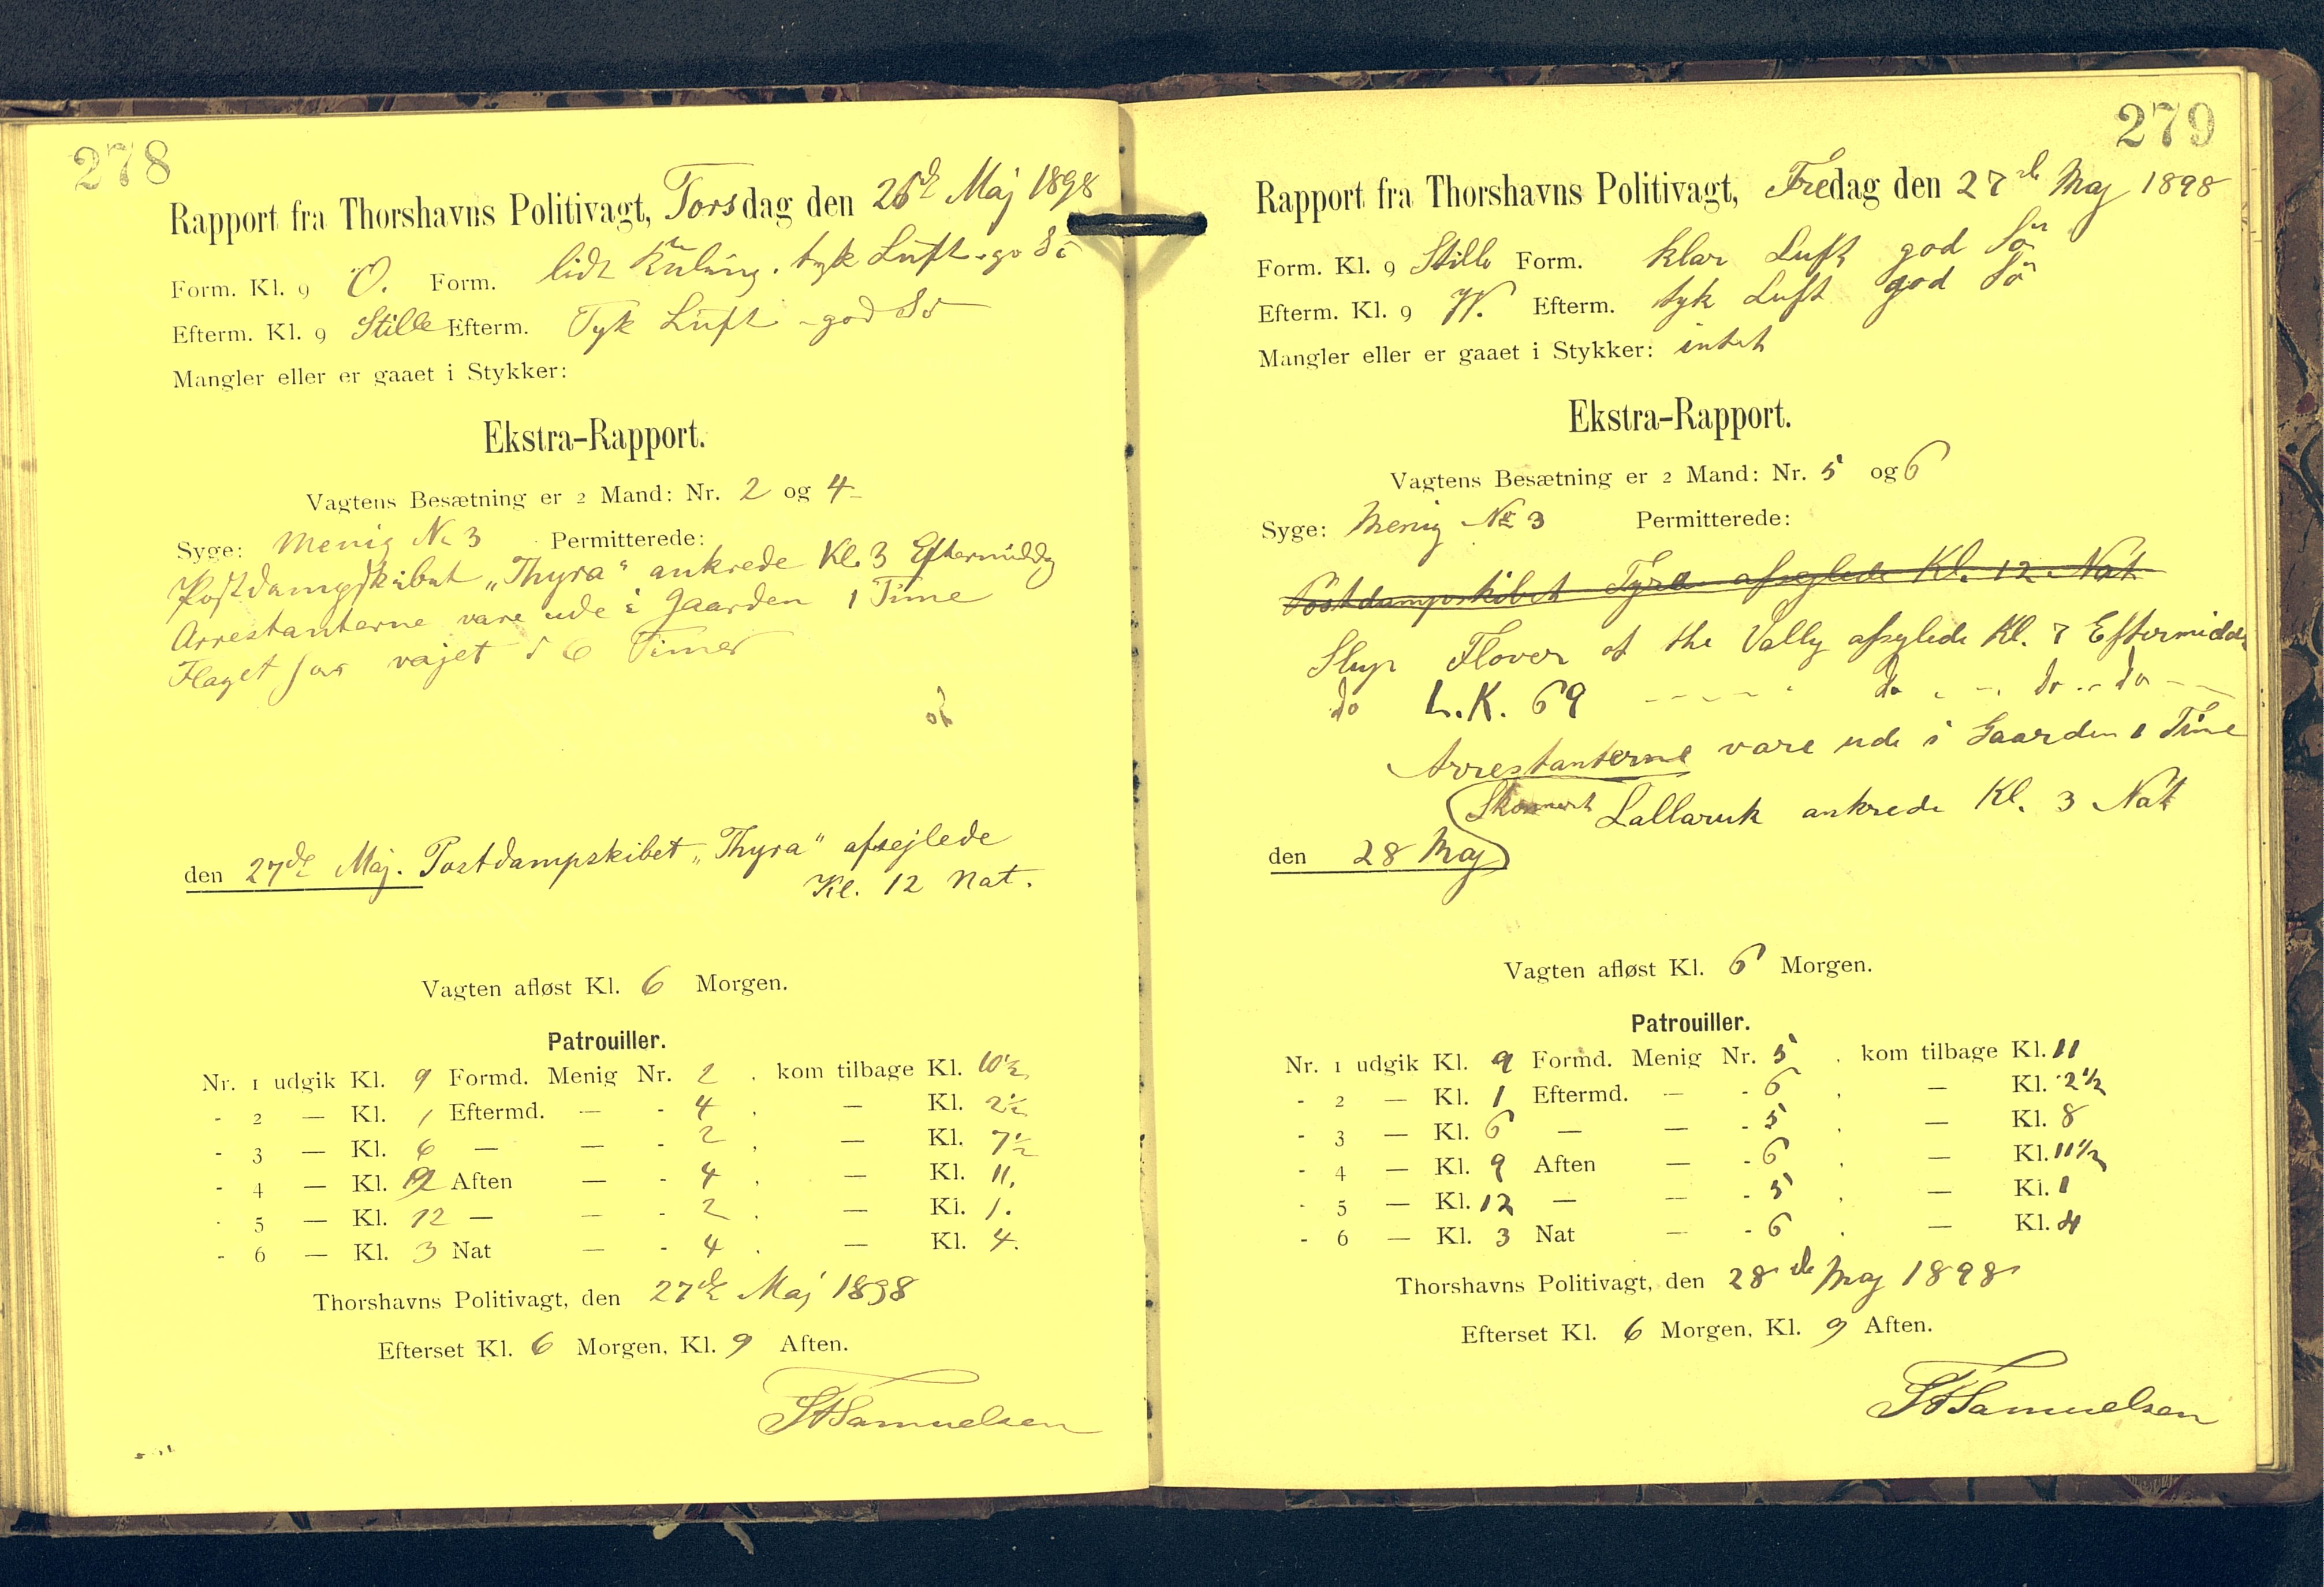 278
Rapport fra Thorshavns Politivagt, Torsdag den 26de Maj 1898
Form. Kl. 9 O. Form. lidt Kuling. tyk Luft. go Sö
Efterm. Kl. 9 Stille Efterm. Tyk Luft - god Sö
Mangler eller er gaaet i Stykker:
Ekstra-Rapport.
Vagtens Besætning er 2 Mand: Nr. 2 og 4
Syge: Menig No 3 Permitterede:
Postdampskibet „Thyra" ankrede Kl. 3 Eftermiddg
Arrestanterne vare ude i Gaarden 1 Time
Flaget har vajet i 6 Timer
den 27de Maj. Postdampskibet „Thyra" afsejlede
Kl. 12 Nat.
Vagten afløst Kl. 6 Morgen.
Patrouiller.
Nr. 1 udgik Kl. 9 Formd. Menig Nr. 2 . kom tilbage Kl. 10½
- 2 — Kl. 1 Eftermd. — - 4 . — Kl. 2½
- 3 — Kl. 6 — — - 2 . — Kl. 7½
- 4 — Kl. 9 Aften — - 4 . — Kl. 11.
- 5 — Kl. 12 — — - 2 . — Kl. 1.
- 6 — Kl. 3 Nat — - 4 . — Kl. 4.
Thorshavns Politivagt, den 27de Maj 1898
Efterset Kl. 6 Morgen, Kl. 9 Aften.
Samuelsen
279
Rapport fra Thorshavns Politivagt, Fredag den 27de Maj 1898
Form. Kl. 9 Stille Form. klar Luft god Sö
Efterm. Kl. 9 W. Efterm. tyk Luft god Sö
Mangler eller er gaaet i Stykker: intet
Ekstra-Rapport.
Vagtens Besætning er 2 Mand: Nr. 5 og 6
Syge: Menig No 3 Permitterede:
Postdampskibet Tyra afseglede Kl. 12 Nat
Slup Flover of the Vally afseglede Kl. 7 Eftermiddg
do L.K. 69 - - - - do - - do - - do - -
Arrestanterne vare ude i Gaarden 1 Time
Skonnert Lallaruk ankrede Kl. 3 Nat
den 28 Maj
Vagten afløst Kl. 6 Morgen.
Patrouiller.
Nr. 1 udgik Kl. 9 Formd. Menig Nr. 5 . kom tilbage Kl. 11
- 2 — Kl. 1 Eftermd. — - 6 . — Kl. 2½
- 3 — Kl. 6 — — - 5 . — Kl. 8
- 4 — Kl. 9 Aften — - 6 . — Kl. 11½
- 5 — Kl. 12 — — - 5 . — Kl. 1
- 6 — Kl. 3 Nat — - 6 . — Kl. 4
Thorshavns Politivagt, den 28de Maj 1898
Efterset Kl. 6 Morgen, Kl. 9 Aften.
Samuelsen